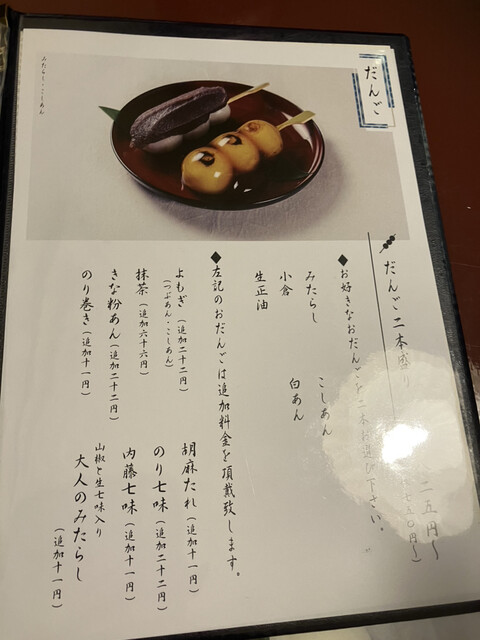 だんご
みたらし・こしあん
だんご二本盛り 二五円〜
◆お好きなおだんごを二本お選び下さい。
みたらし こしあん
小倉 白あん
生正油
◆左記のおだんごは追加料金を頂戴致します。
よもぎ（追加二十二円）
（つぶあん・こしあん）
抹茶（追加六十六円）
きな粉あん（追加二十二円）
のり巻き（追加十一円）
胡麻たれ（追加十一円）
のり七味（追加二十二円）
内藤七味（追加十一円）
山椒と生七味入り
大人のみたらし
（追加十一円）